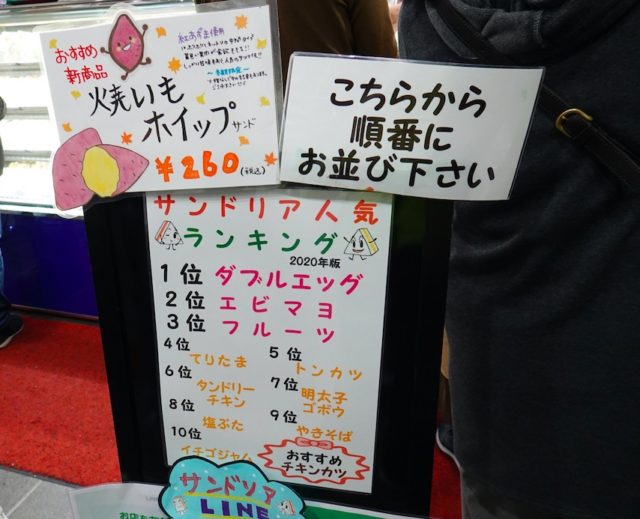 おすすめ
新商品
紅あずま使用
焼いも
ホイップサンド
¥260(税込)
こちらから
順番に
お並び下さい
サンドリア人気
ランキング
2020年版
1位 ダブルエッグ
2位 エビマヨ
3位 フルーツ
4位 てりたま
5位 トンカツ
6位 タンドリーチキン
7位 明太子ゴボウ
8位 塩ぶた
9位 やきそば
10位 イチゴジャム
おすすめ
チキンカツ
サンドリア
LINE